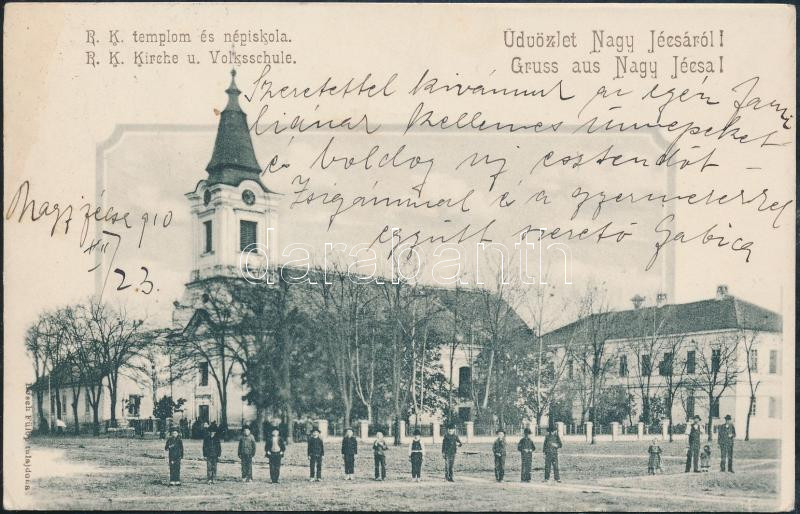 R. K. templom és népiskola.
R. K. Kirche u. Volksschule.
Üdvözlet Nagy Jécsáról!
Gruss aus Nagy Jécsa!
Szeretettel kivánunk az egén
kellemes ünnepeket
és boldog uj esztendőt –
Zsigánnal és a gyermekekkel
együtt szerető Gabica
Nagyjécsa 910
XII
23.
darabanth